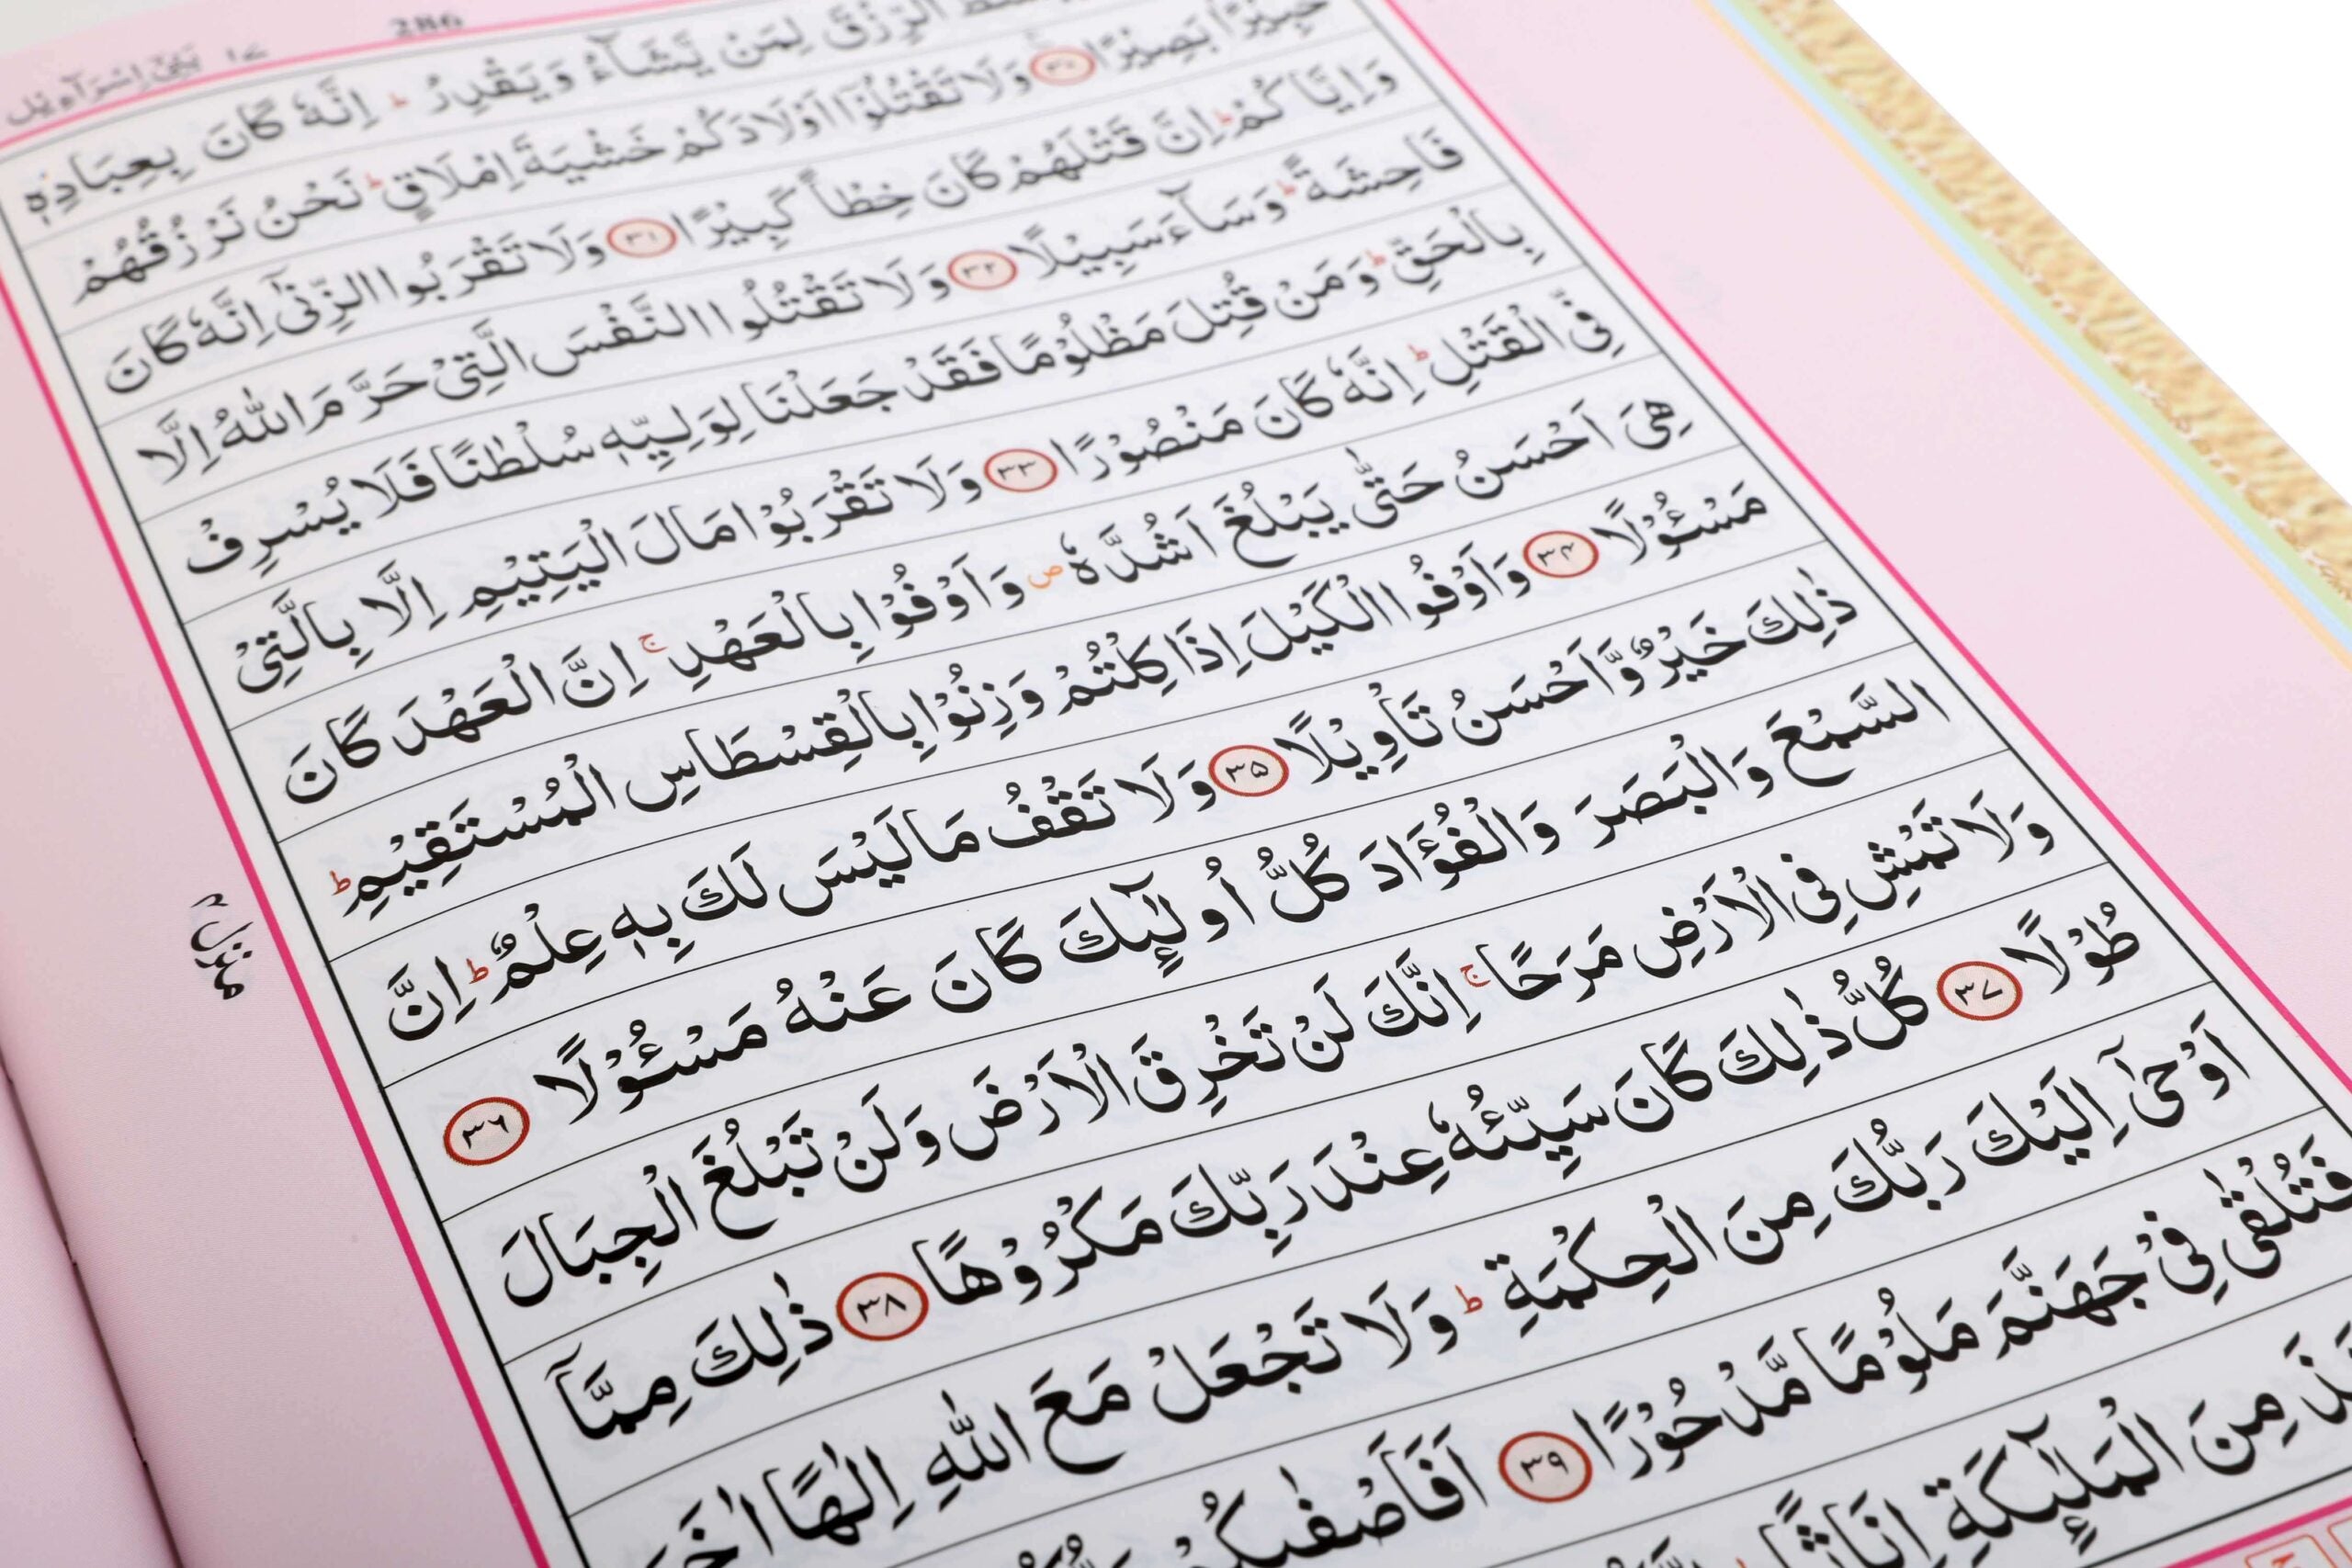 286
بَنِيْٓ اِسْرَآءِيْل ١٧
الرِّزْقَ لِمَنْ يَّشَآءُ وَيَقْدِرُ ؕ اِنَّهٗ كَانَ بِعِبَادِهٖ
خَبِيْرًۢا بَصِيْرًا ٣٠ وَلَا تَقْتُلُوْٓا اَوْلَادَكُمْ خَشْيَةَ اِمْلَاقٍ ؕ نَحْنُ نَرْزُقُهُمْ
وَاِيَّاكُمْ ؕ اِنَّ قَتْلَهُمْ كَانَ خِطْاً كَبِيْرًا ٣١ وَلَا تَقْرَبُوا الزِّنٰٓى اِنَّهٗ كَانَ
فَاحِشَةً ؕ وَسَآءَ سَبِيْلًا ٣٢ وَلَا تَقْتُلُوا النَّفْسَ الَّتِيْ حَرَّمَ اللّٰهُ اِلَّا
بِالْحَقِّ ؕ وَمَنْ قُتِلَ مَظْلُوْمًا فَقَدْ جَعَلْنَا لِوَلِيِّهٖ سُلْطٰنًا فَلَا يُسْرِفْ
فِّي الْقَتْلِ ؕ اِنَّهٗ كَانَ مَنْصُوْرًا ٣٣ وَلَا تَقْرَبُوْا مَالَ الْيَتِيْمِ اِلَّا بِالَّتِيْ
هِيَ اَحْسَنُ حَتّٰى يَبْلُغَ اَشُدَّهٗ ص وَاَوْفُوْا بِالْعَهْدِ ۚ اِنَّ الْعَهْدَ كَانَ
مَسْـُٔوْلًا ٣٤ وَاَوْفُوا الْكَيْلَ اِذَا كِلْتُمْ وَزِنُوْا بِالْقِسْطَاسِ الْمُسْتَقِيْمِ ؕ
ذٰلِكَ خَيْرٌ وَّاَحْسَنُ تَاْوِيْلًا ٣٥ وَلَا تَقْفُ مَا لَيْسَ لَكَ بِهٖ عِلْمٌ ؕ اِنَّ
السَّمْعَ وَالْبَصَرَ وَالْفُؤَادَ كُلُّ اُولٰٓئِكَ كَانَ عَنْهُ مَسْـُٔوْلًا ٣٦
وَلَا تَمْشِ فِي الْاَرْضِ مَرَحًا ۚ اِنَّكَ لَنْ تَخْرِقَ الْاَرْضَ وَلَنْ تَبْلُغَ الْجِبَالَ
طُوْلًا ٣٧ كُلُّ ذٰلِكَ كَانَ سَيِّئُهٗ عِنْدَ رَبِّكَ مَكْرُوْهًا ٣٨ ذٰلِكَ مِمَّآ
اَوْحٰٓى اِلَيْكَ رَبُّكَ مِنَ الْحِكْمَةِ ؕ وَلَا تَجْعَلْ مَعَ اللّٰهِ اِلٰهًا اٰخَرَ
فَتُلْقٰى فِيْ جَهَنَّمَ مَلُوْمًا مَّدْحُوْرًا ٣٩ اَفَاَصْفٰىكُمْ
مِنَ الْمَلٰٓئِكَةِ اِنَاثًا
منزل ٤